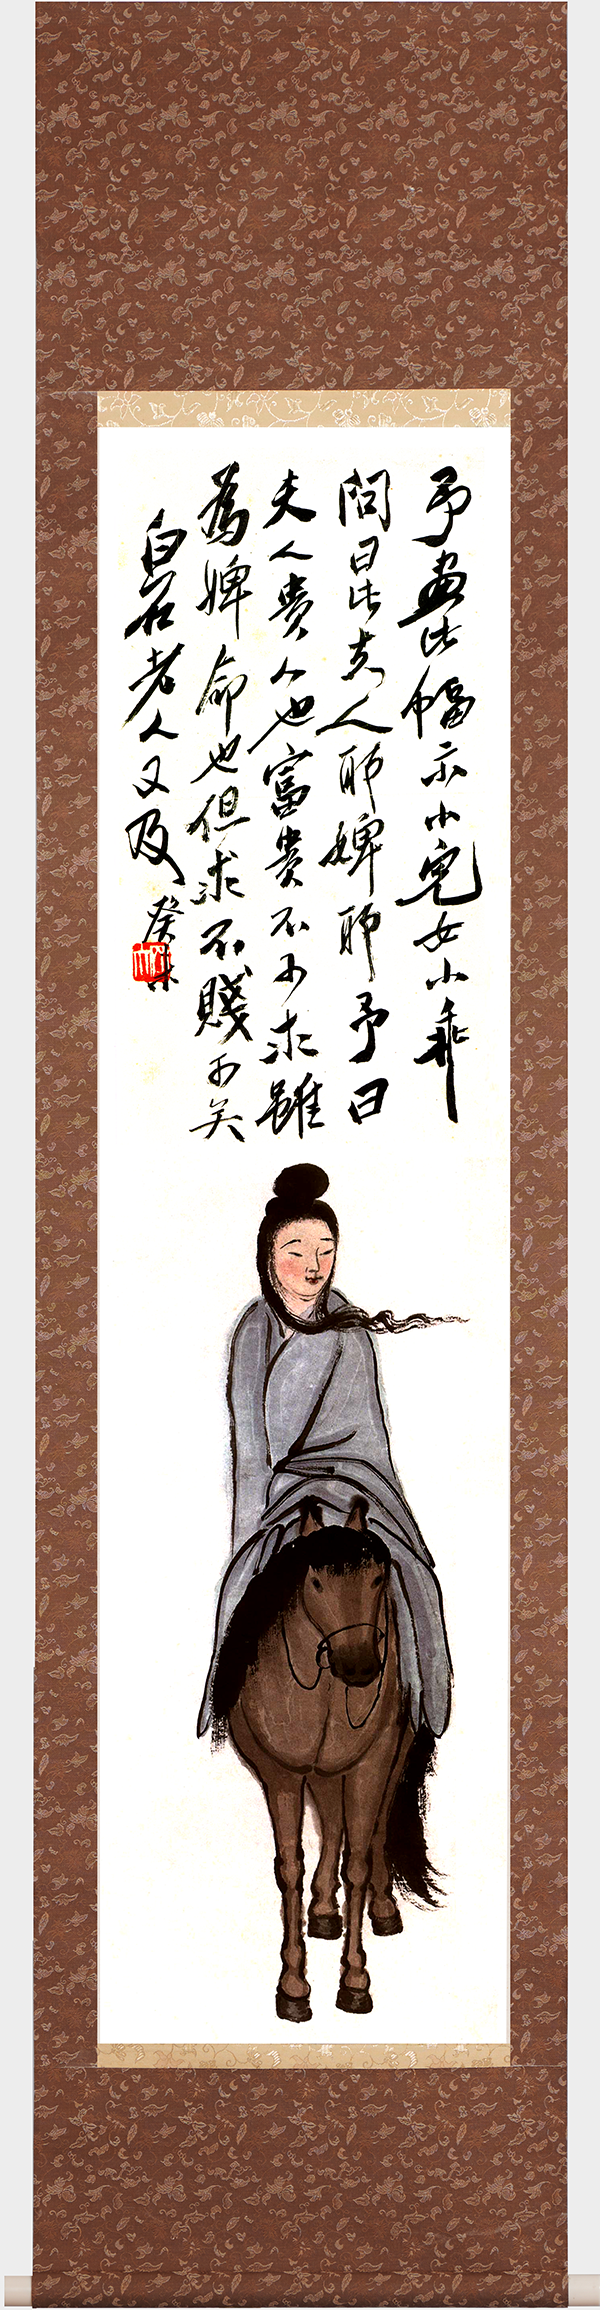 予画此幅示小兒女小乖
問曰此夫人耶婢耶予曰
夫人貴人也富貴不可求雖
為婢命也但求不賤可矣
白石老人又及
癸未